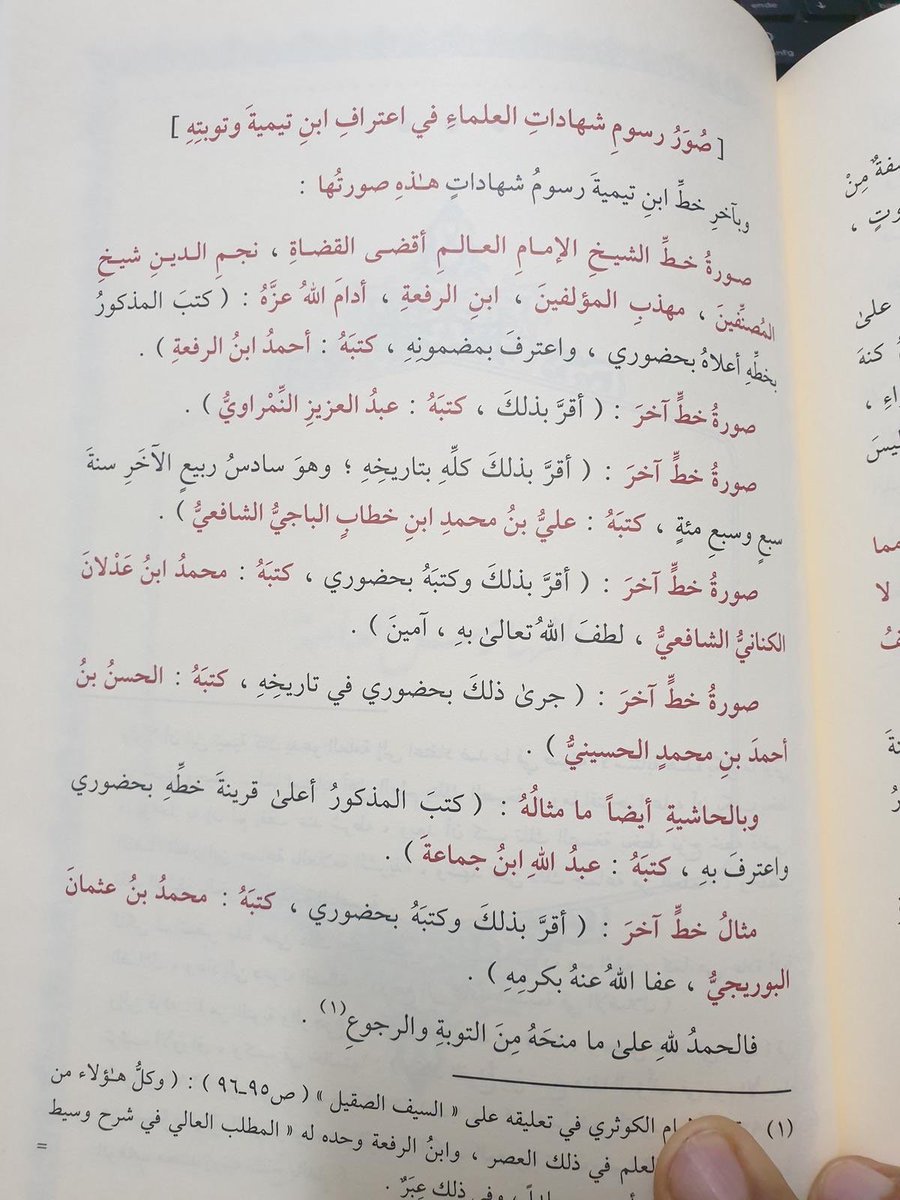 [ صُوَرُ رسومِ شهاداتِ العلماءِ في اعترافِ ابنِ تيميةَ وتوبتِهِ ]
وبآخرِ خطِّ ابنِ تيميةَ رسومُ شهاداتٍ هـٰذهِ صورتُها :
صورةُ خطِّ الشيخِ الإمامِ العالمِ أقضى القضاةِ ، نجمِ الدينِ شيخِ
المُصنِّفينَ ، مهذبِ المؤلفينَ ، ابنِ الرفعةِ ، أدامَ اللهُ عزَّهُ : ( كتبَ المذكورُ
بخطِّهِ أعلاهُ بحضوري ، واعترفَ بمضمونِهِ ، كتبَهُ : أحمدُ ابنُ الرفعةِ ) .
صورةُ خطٍّ آخرَ : ( أقرَّ بذلكَ ، كتبَهُ : عبدُ العزيزِ النِّمْراويُّ ) .
صورةُ خطٍّ آخرَ : ( أقرَّ بذلكَ كلِّهِ بتاريخِهِ ؛ وهوَ سادسُ ربيعٍ الآخَرِ سنةَ
سبعٍ وسبعِ مئةٍ ، كتبَهُ : عليُّ بنُ محمدِ ابنِ خطابٍ الباجيُّ الشافعيُّ ) .
صورةُ خطٍّ آخرَ : ( أقرَّ بذلكَ وكتبَهُ بحضوري ، كتبَهُ : محمدُ ابنُ عَدْلانَ
الكنانيُّ الشافعيُّ ، لطفَ اللهُ تعالىٰ بهِ ، آمينَ ) .
صورةُ خطٍّ آخرَ : ( جرىٰ ذلكَ بحضوري في تاريخِهِ ، كتبَهُ : الحسنُ بنُ
أحمدَ بنِ محمدٍ الحسينيُّ ) .
وبالحاشيةِ أيضاً ما مثالُهُ : ( كتبَ المذكورُ أعلىٰ قرينةَ خطِّهِ بحضوري
واعترفَ بهِ ، كتبَهُ : عبدُ اللهِ ابنُ جماعةَ ) .
مثالُ خطٍّ آخرَ : ( أقرَّ بذلكَ وكتبَهُ بحضوري ، كتبَهُ : محمدُ بنُ عثمانَ
البوريجيُّ ، عفا اللهُ عنهُ بكرمِهِ ) .
فالحمدُ للهِ علىٰ ما منحَهُ مِنَ التوبةِ والرجوعِ(١) .
(١) الكوثري في تعليقه على « السيف الصقيل » ( ص٩٥ـ٩٦ ) : ( وكلُّ هـٰؤلاء من
العلم في ذلك العصر ، وابنُ الرفعة وحده له « المطلب العالي في شرح وسيط
وفي ذلك عِبَرٌ .
=